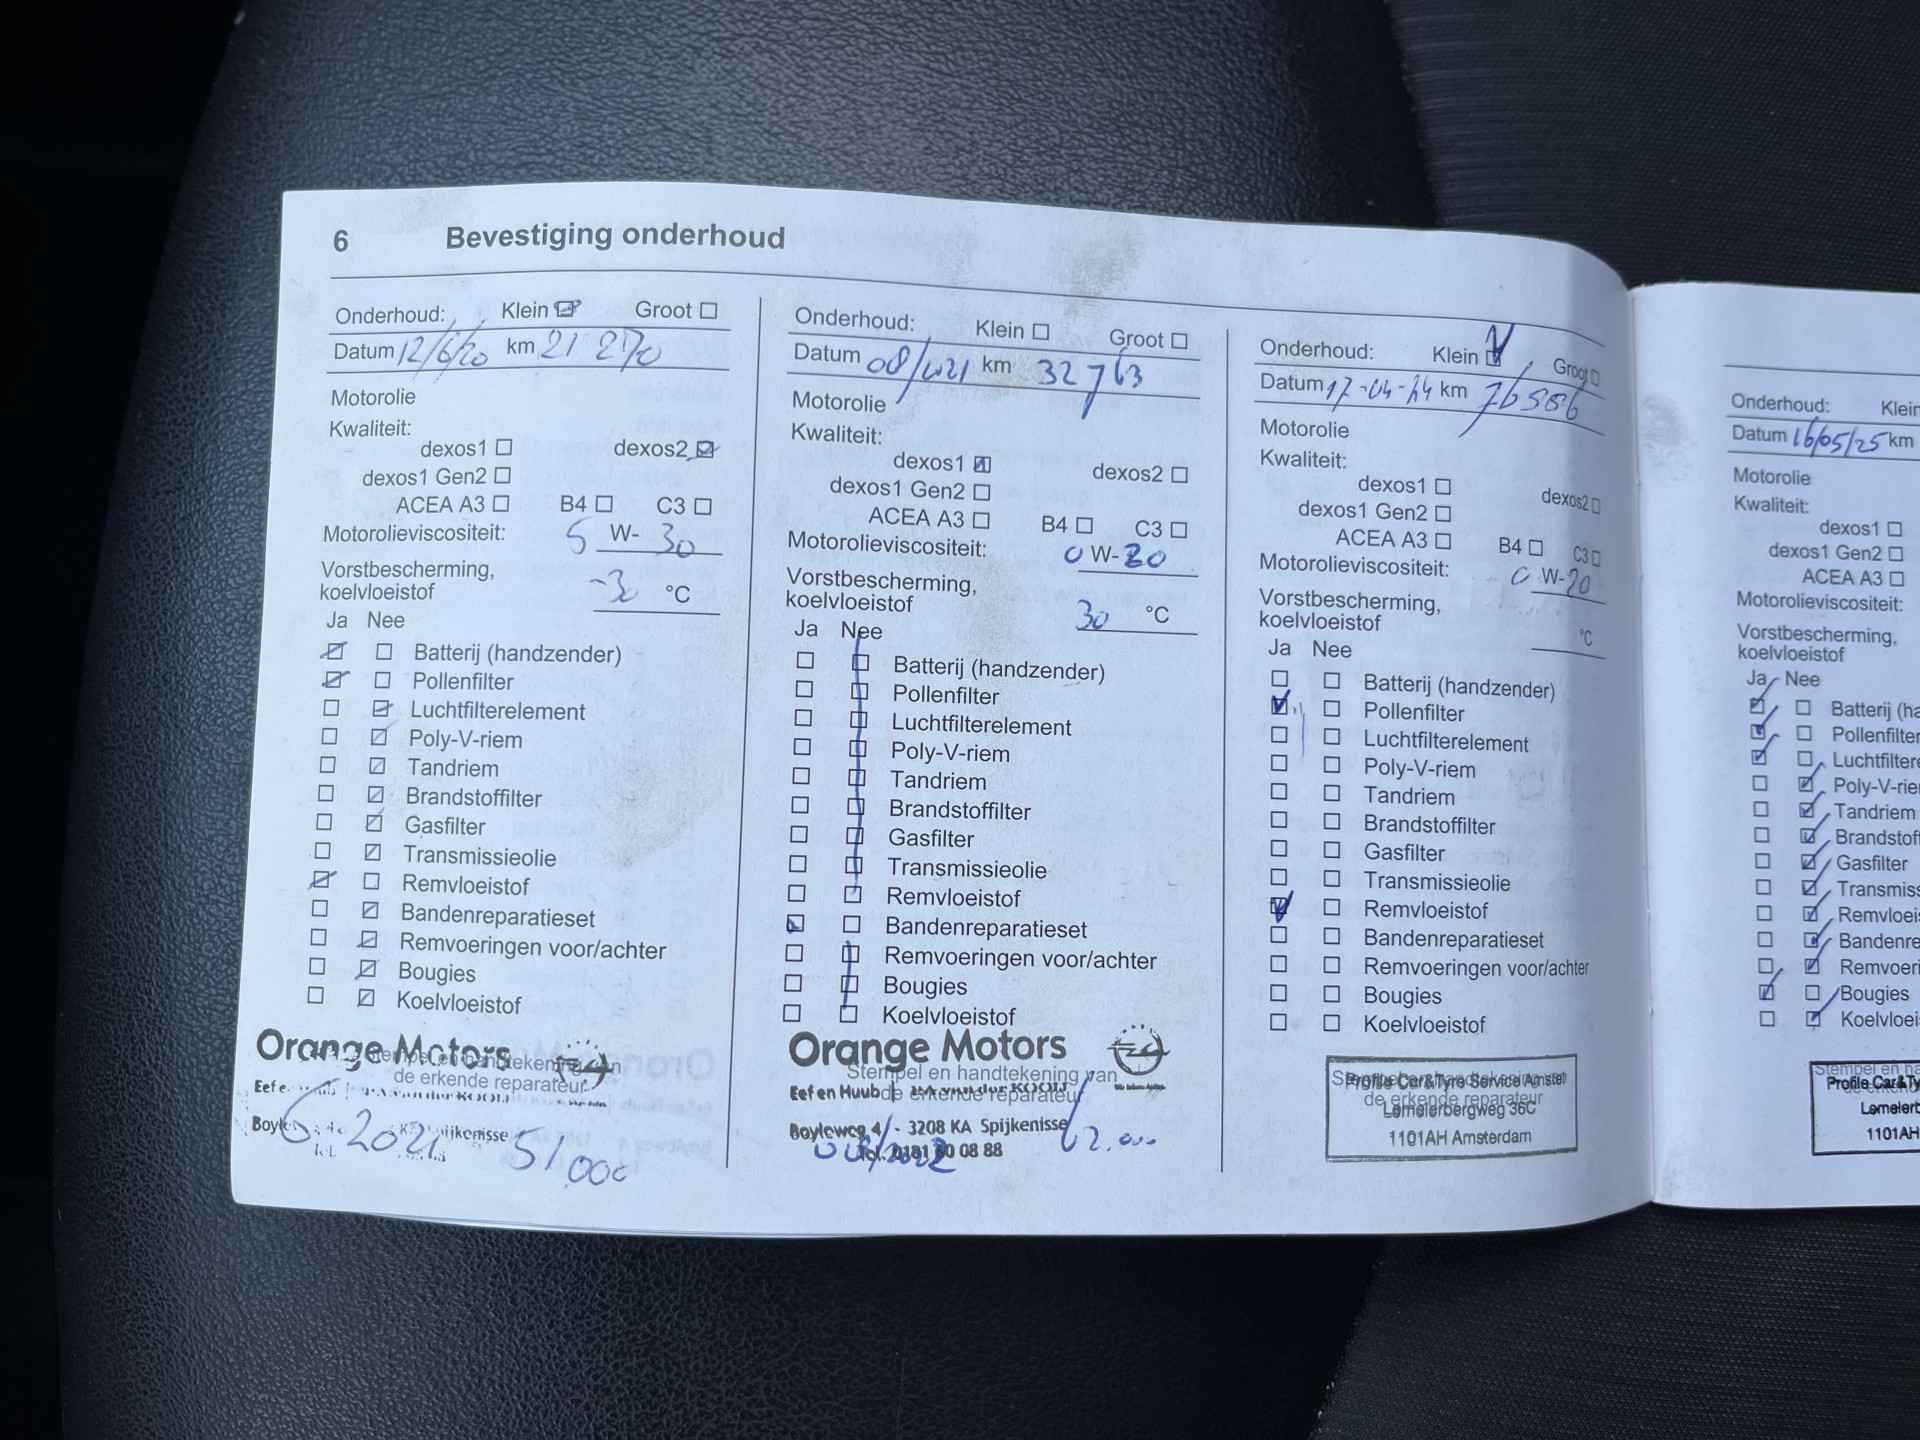 6 Bevestiging onderhoud
Onderhoud: Klein Groot
Datum 12/6/20 km 21 270
Motorolie
Kwaliteit:
dexos1 dexos2
dexos1 Gen2
ACEA A3 B4 C3
Motorolieviscositeit: 5 W- 30
Vorstbescherming,
koelvloeistof -30 °C
Ja Nee
Batterij (handzender)
Pollenfilter
Luchtfilterelement
Poly-V-riem
Tandriem
Brandstoffilter
Gasfilter
Transmissieolie
Remvloeistof
Bandenreparatieset
Remvoeringen voor/achter
Bougies
Koelvloeistof
Orange Motors
Stempel en handtekening van
de erkende reparateur
6 2021 51.000
Onderhoud: Klein Groot
Datum 08/2021 km 32763
Motorolie
Kwaliteit:
dexos1 dexos2
dexos1 Gen2
ACEA A3 B4 C3
Motorolieviscositeit: 0 W-20
Vorstbescherming,
koelvloeistof 30 °C
Ja Nee
Batterij (handzender)
Pollenfilter
Luchtfilterelement
Poly-V-riem
Tandriem
Brandstoffilter
Gasfilter
Transmissieolie
Remvloeistof
Bandenreparatieset
Remvoeringen voor/achter
Bougies
Koelvloeistof
Orange Motors
Stempel en handtekening van
Eef en Huub van der KOOIJ
de erkende reparateur
Boyleweg 4 - 3208 KA Spijkenisse
Tel. 0181 60 08 88
08/2022 62.000
Onderhoud: Klein Groot
Datum 17-04-24 km 76586
Motorolie
Kwaliteit:
dexos1 dexos2
dexos1 Gen2
ACEA A3 B4 C3
Motorolieviscositeit: 0 W-20
Vorstbescherming,
koelvloeistof °C
Ja Nee
Batterij (handzender)
Pollenfilter
Luchtfilterelement
Poly-V-riem
Tandriem
Brandstoffilter
Gasfilter
Transmissieolie
Remvloeistof
Bandenreparatieset
Remvoeringen voor/achter
Bougies
Koelvloeistof
Stempel en handtekening van
Profile Car&Tyre Service Amstel
de erkende reparateur
Lemelerbergweg 36C
1101AH Amsterdam
Onderhoud: Klein
Datum 16/05/25 km
Motorolie
Kwaliteit:
dexos1
dexos1 Gen2
ACEA A3
Motorolieviscositeit:
Vorstbescherming,
koelvloeistof
Ja Nee
Batterij (ha
Pollenfilter
Luchtfiltere
Poly-V-rie
Tandriem
Brandstof
Gasfilter
Transmiss
Remvloeis
Bandenre
Remvoeri
Bougies
Koelvloeis
Stempel en ha
Profile Car&Ty
Lemelerb
1101AH